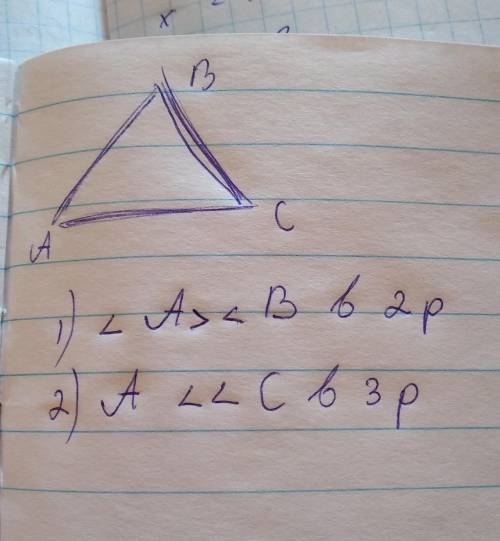 x
B
A
C
1) < A > < B в 2 р
2) A < < C в 3 р